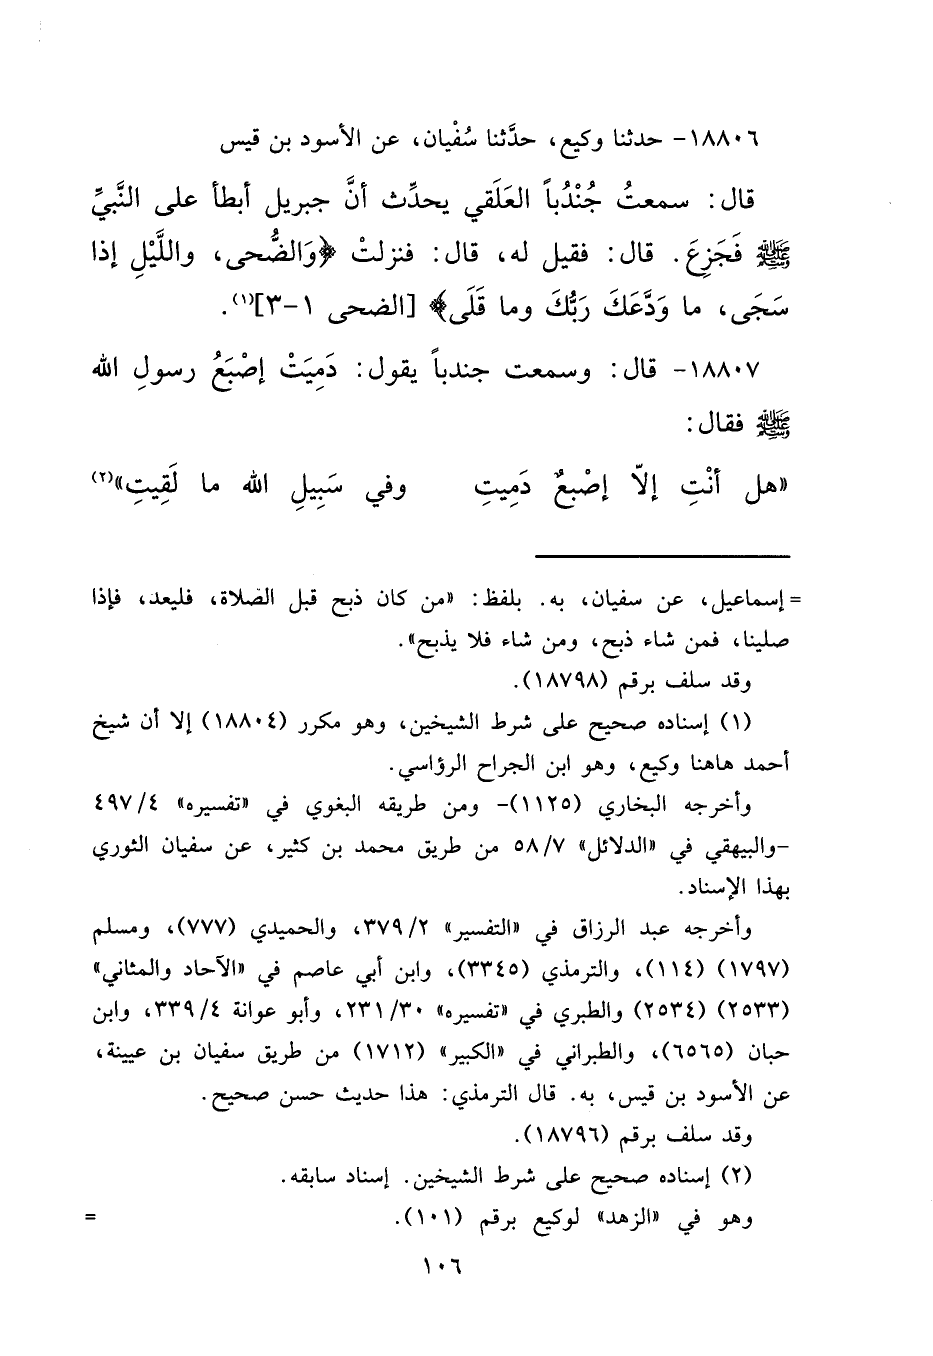 ١٨٨٠٦- حدثنا وكيع، حدَّثنا سُفْيان، عن الأسود بن قيس
قال: سمعتُ جُنْدُباً العَلَقي يحدِّث أنَّ جبريل أبطأ على النَّبيِّ
ﷺ فَجَزِعَ. قال: فقيل له، قال: فنزلتْ ﴿وَالضُّحى، واللَّيْلِ إذا
سَجَى، ما وَدَّعَكَ رَبُّكَ وما قَلَى﴾ [الضحى ١-٣](١).
١٨٨٠٧- قال: وسمعت جندباً يقول: دَمِيَتْ إصْبَعُ رسولِ الله
ﷺ فقال:
«هل أنْتِ إلّا إصْبعٌ دَمِيتِ وفي سَبِيلِ الله ما لَقِيتِ»(٢)
= إسماعيل، عن سفيان، به. بلفظ: «من كان ذبح قبل الصلاة، فليعد، فإذا
صلينا، فمن شاء ذبح، ومن شاء فلا يذبح».
وقد سلف برقم (١٨٧٩٨).
(١) إسناده صحيح على شرط الشيخين، وهو مكرر (١٨٨٠٤) إلا أن شيخ
أحمد هاهنا وكيع، وهو ابن الجراح الرؤاسي.
وأخرجه البخاري (١١٢٥)- ومن طريقه البغوي في «تفسيره» ٤٩٧/٤
-والبيهقي في «الدلائل» ٥٨/٧ من طريق محمد بن كثير، عن سفيان الثوري
بهذا الإسناد.
وأخرجه عبد الرزاق في «التفسير» ٣٧٩/٢، والحميدي (٧٧٧)، ومسلم
(١٧٩٧) (١١٤)، والترمذي (٣٣٤٥)، وابن أبي عاصم في «الآحاد والمثاني»
(٢٥٣٣) (٢٥٣٤) والطبري في «تفسيره» ٢٣١/٣٠، وأبو عوانة ٣٣٩/٤، وابن
حبان (٦٥٦٥)، والطبراني في «الكبير» (١٧١٢) من طريق سفيان بن عيينة،
عن الأسود بن قيس، به. قال الترمذي: هذا حديث حسن صحيح.
وقد سلف برقم (١٨٧٩٦).
(٢) إسناده صحيح على شرط الشيخين. إسناد سابقه.
وهو في «الزهد» لوكيع برقم (١٠١). =
١٠٦